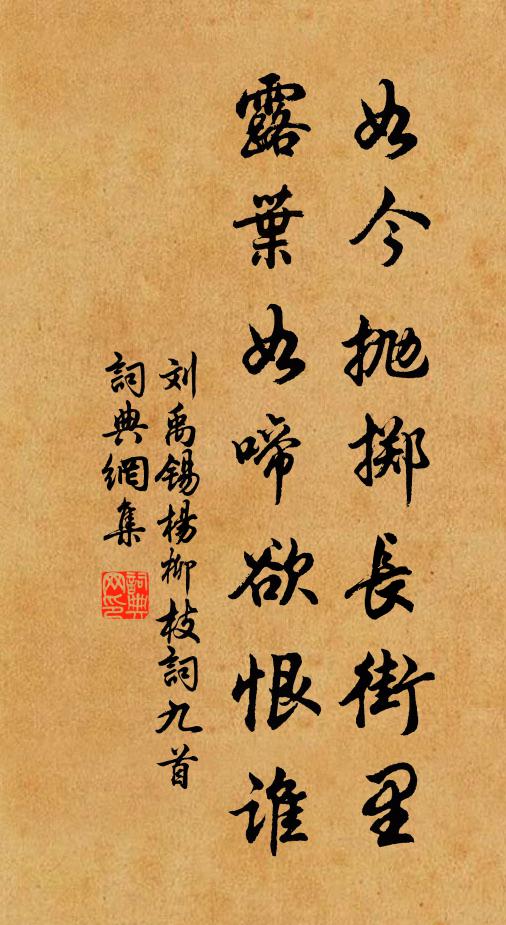 如今抛掷長街里
露葉如啼欲恨誰
刘禹锡楊柳枝詞九首
詞典網集
詞典网印